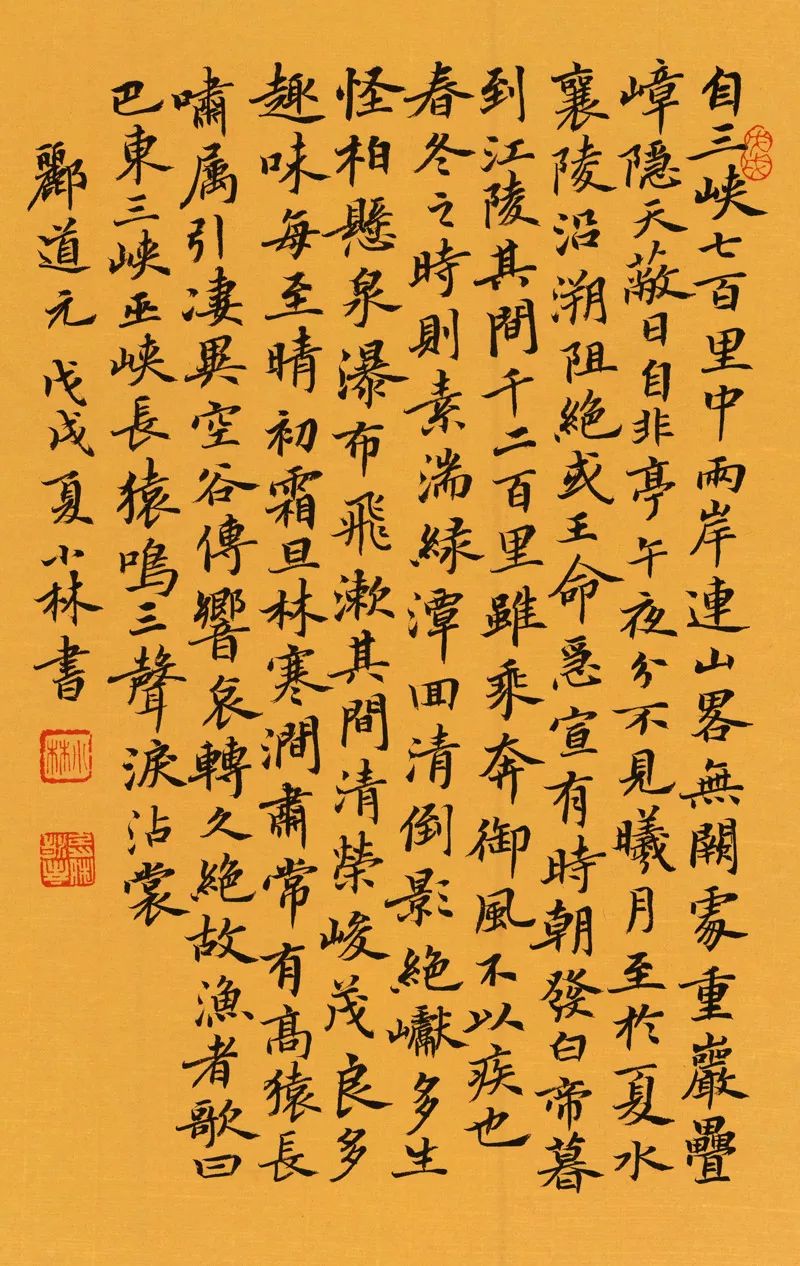 自三峽七百里中兩岸連山畧無闕處重巖疊
嶂隱天蔽日自非亭午夜分不見曦月至於夏水
襄陵沿溯阻絕或王命急宣有時朝發白帝暮
到江陵其間千二百里雖乘奔御風不以疾也
春冬之時則素湍緑潭回清倒影絕巘多生
怪柏懸泉瀑布飛漱其間清榮峻茂良多
趣味每至晴初霜旦林寒澗肅常有高猿長
嘯属引淒異空谷傳響哀轉久絕故漁者歌曰
巴東三峽巫峽長猿鳴三聲淚沾裳
酈道元戊戌夏小林書
戊戌
小林